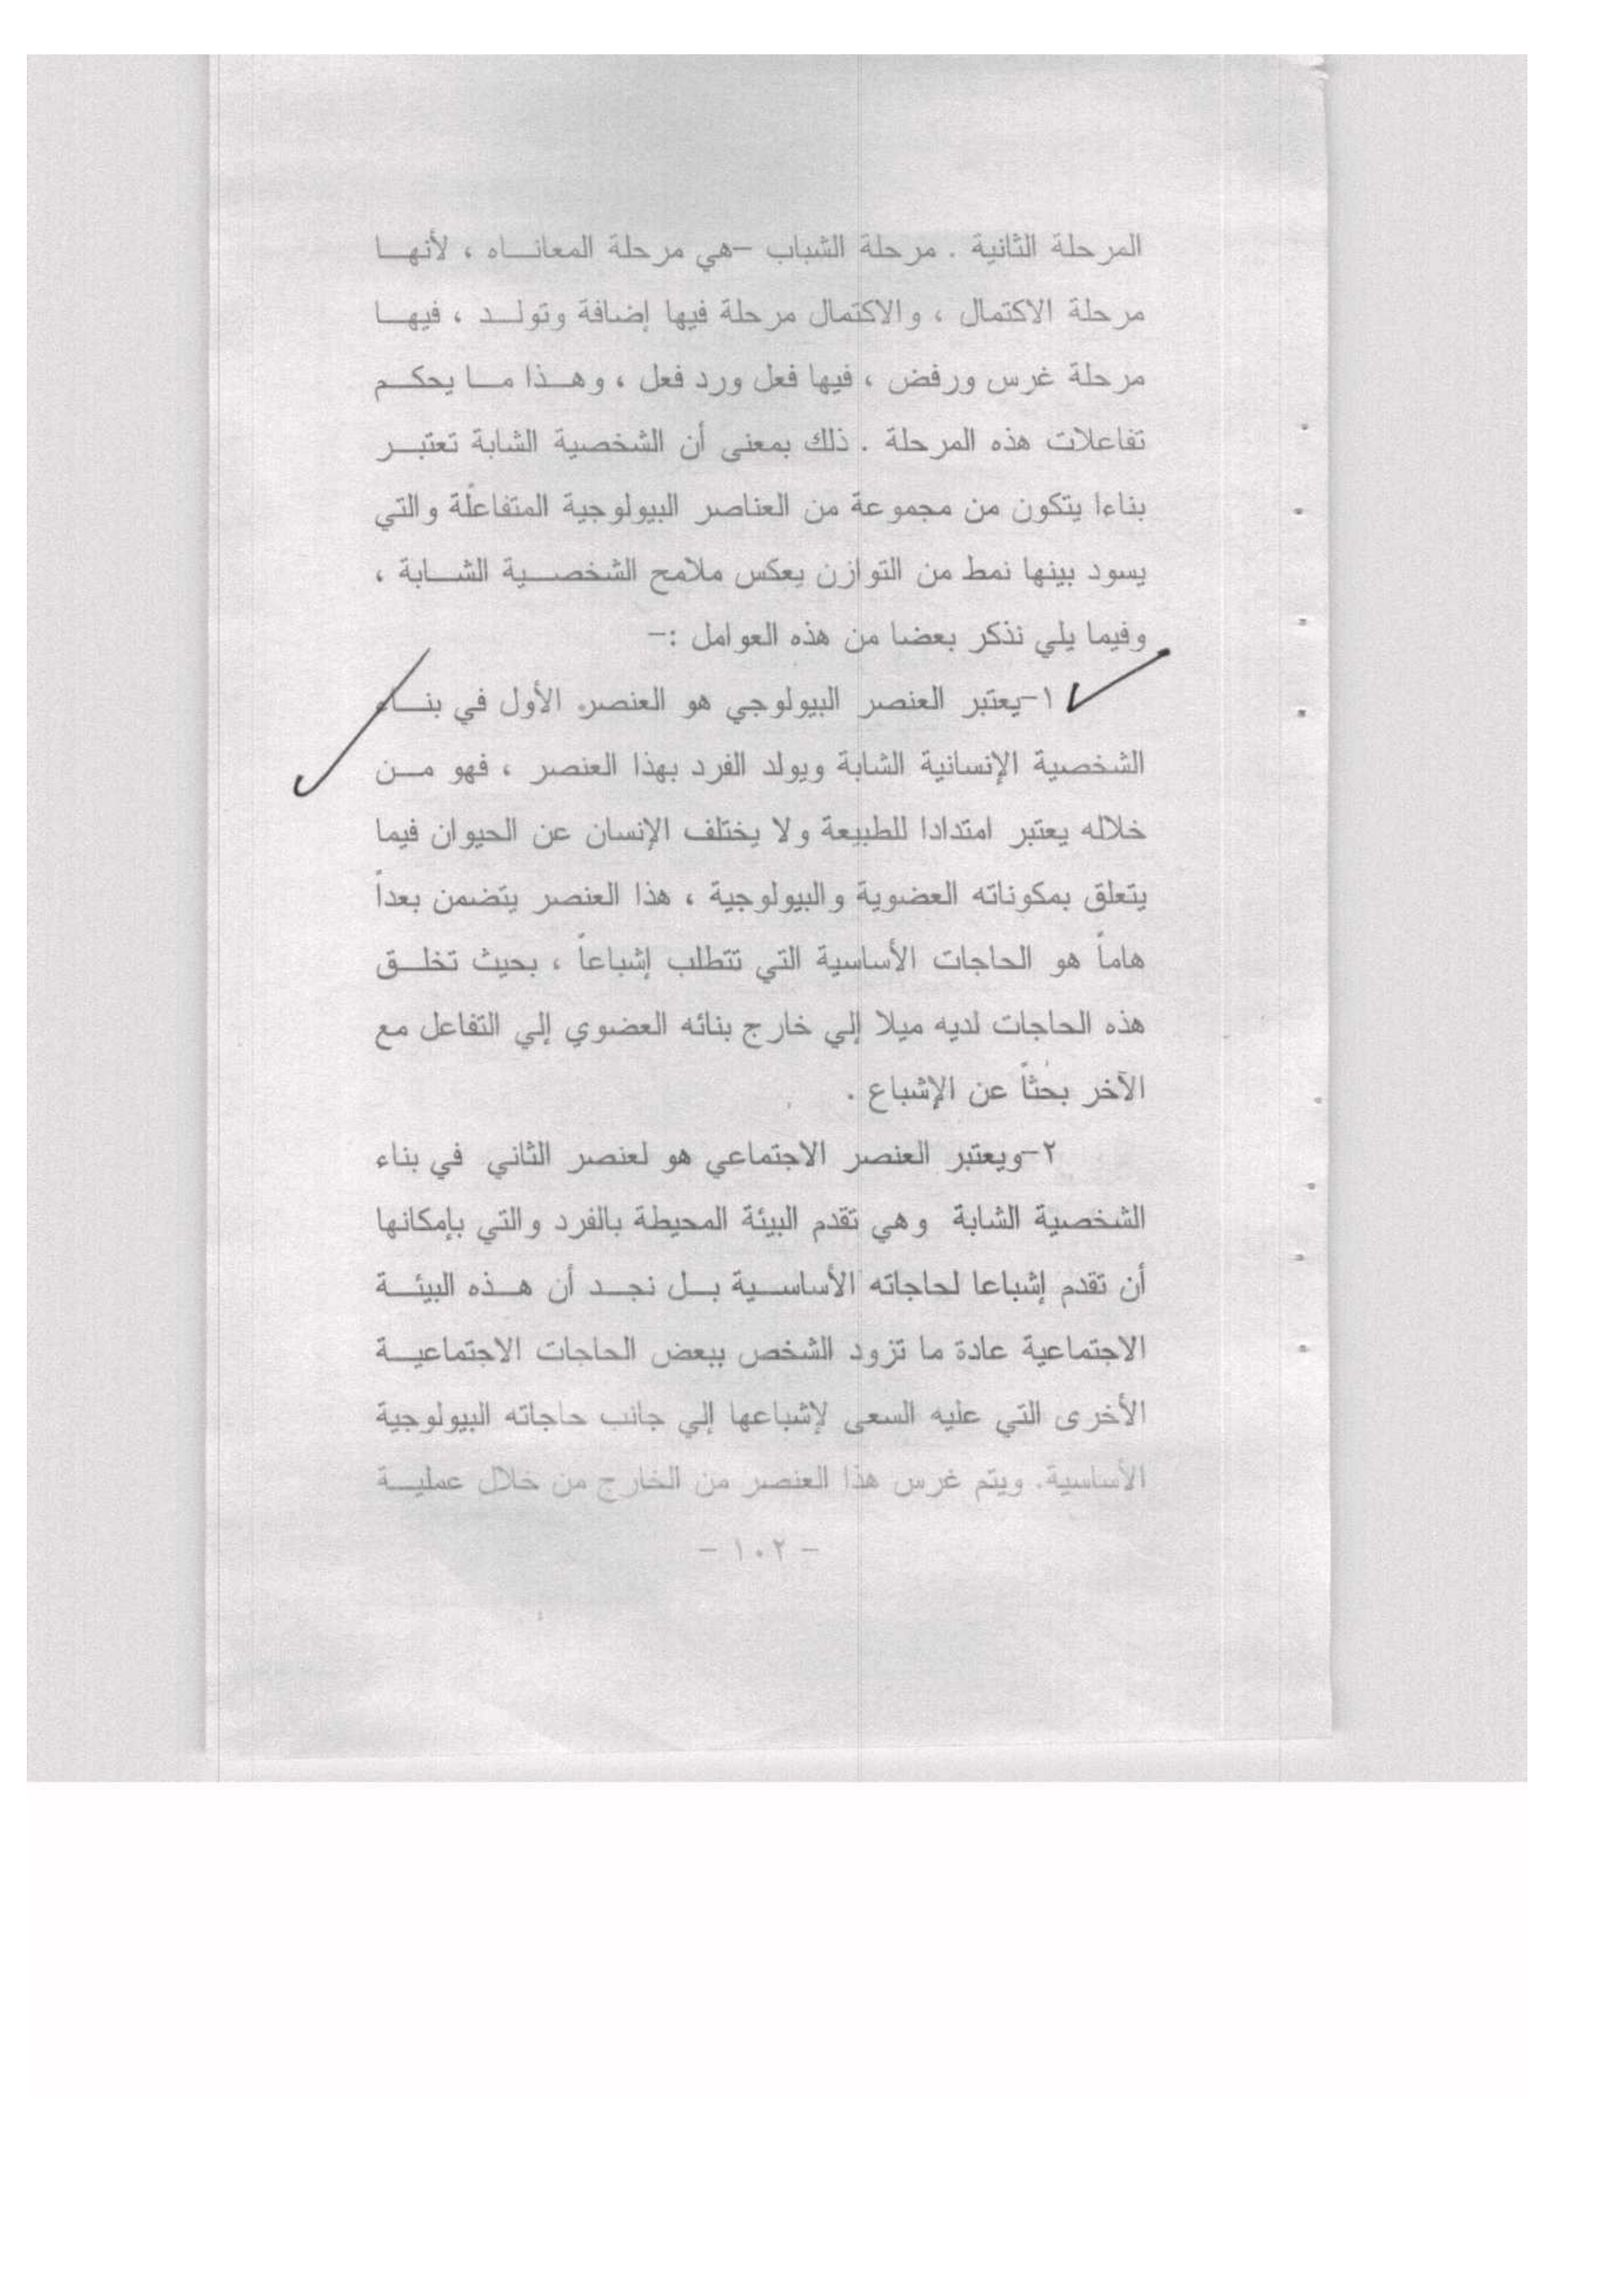 المرحلة الثانية . مرحلة الشباب –هي مرحلة المعانــاه ، لأنهــا
مرحلة الاكتمال ، والاكتمال مرحلة فيها إضافة وتولــد ، فيهــا
مرحلة غرس ورفض ، فيها فعل ورد فعل ، وهــذا مــا يحكــم
تفاعلات هذه المرحلة . ذلك بمعنى أن الشخصية الشابة تعتبــر
بناءا يتكون من مجموعة من العناصر البيولوجية المتفاعلة والتي
يسود بينها نمط من التوازن يعكس ملامح الشخصــية الشــابة ،
وفيما يلي نذكر بعضا من هذه العوامل :–
١–يعتبر العنصر البيولوجي هو العنصر الأول في بنــاء
الشخصية الإنسانية الشابة ويولد الفرد بهذا العنصر ، فهو مــن
خلاله يعتبر امتدادا للطبيعة ولا يختلف الإنسان عن الحيوان فيما
يتعلق بمكوناته العضوية والبيولوجية ، هذا العنصر يتضمن بعداً
هاماً هو الحاجات الأساسية التي تتطلب إشباعاً ، بحيث تخلــق
هذه الحاجات لديه ميلا إلي خارج بنائه العضوي إلي التفاعل مع
الآخر بحثاً عن الإشباع .
٢–ويعتبر العنصر الاجتماعي هو لعنصر الثاني في بناء
الشخصية الشابة وهي تقدم البيئة المحيطة بالفرد والتي بإمكانها
أن تقدم إشباعا لحاجاته الأساســية بــل نجــد أن هــذه البيئــة
الاجتماعية عادة ما تزود الشخص ببعض الحاجات الاجتماعيــة
الأخرى التي عليه السعى لإشباعها إلي جانب حاجاته البيولوجية
الأساسية. ويتم غرس هذا العنصر من الخارج من خلال عمليــة
– ١٠٢ –